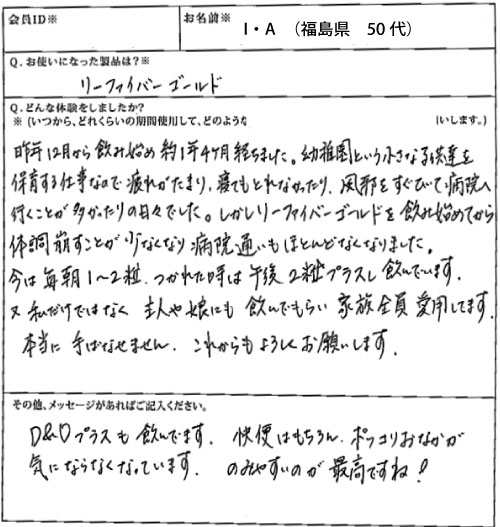 会員ID※
お名前※
I・A （福島県 50代）
Q. お使いになった製品は?※
リーファイバーゴールド
Q. どんな体験をしましたか?
※（いつから、どれくらいの期間使用して、どのような いします。）
昨年12月から飲み始め約1年4ヶ月経ちました。幼稚園という小さな子供達を
保育する仕事なので疲れがたまり、寝てもとれなかったり、風邪をすぐひいて病院へ
行くことが多かったりの日々でした。しかしリーファイバーゴールドを飲み始めてから
体調崩すことが少なくなり病院通いもほとんどなくなりました。
今は毎朝1〜2粒、つかれた時は午後2粒プラスし飲んでいます。
又私だけではなく主人や娘にも飲んでもらい家族全員愛用してます。
本当に手ばなせません。これからもよろしくお願いします。
その他、メッセージがあればご記入ください。
D&Dプラスも飲んでます。快便はもちろん、ポッコリおなかが
気にならなくなっています。のみやすいのが最高ですね!